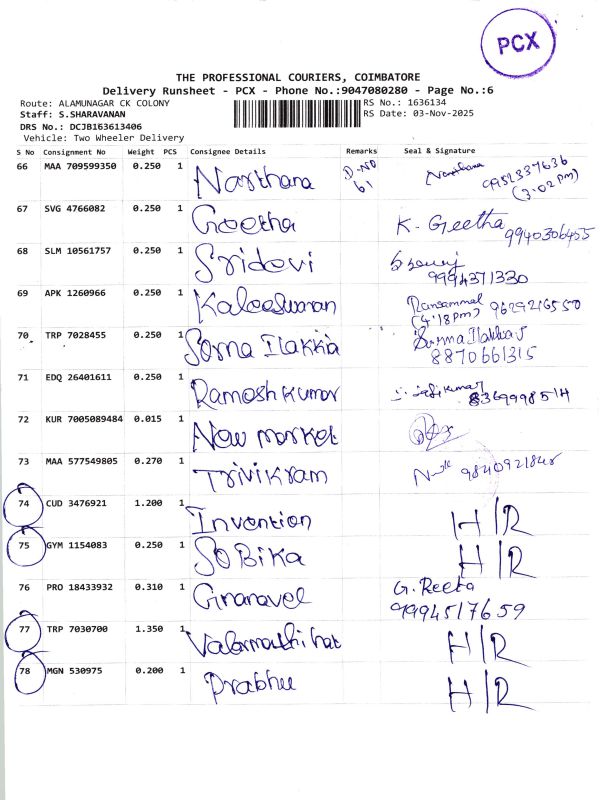 PCX
THE PROFESSIONAL COURIERS, COIMBATORE
Delivery Runsheet - PCX - Phone No.:9047080280 - Page No.:6
Route: ALAMUNAGAR CK COLONY RS No.: 1636134
Staff: S.SHARAVANAN RS Date: 03-Nov-2025
DRS No.: DCJB163613406
Vehicle: Two Wheeler Delivery
S No Consignment No Weight PCS Consignee Details Remarks Seal & Signature
66 MAA 709599350 0.250 1 Narthana D-NO 61 Narthana 9952337636 (3.02pm)
67 SVG 4766082 0.250 1 Geetha K. Geetha 9940306455
68 SLM 10561757 0.250 1 Sridevi 9994371330
69 APK 1260966 0.250 1 Kaleeswaran (4.18pm) 9629216550
70 TRP 7028455 0.250 1 Sorna Ilakkia 8870661315
71 EDQ 26401611 0.250 1 Ramesh kumar 8369998514
72 KUR 7005089484 0.015 1 New market
73 MAA 577549805 0.270 1 Trivikram
74 CUD 3476921 1.200 1 Invention H/R
75 GYM 1154083 0.250 1 SOBIKA H/R
76 PRO 18433932 0.310 1 Gnanavel G. Reeta 9994517659
77 TRP 7030700 1.350 1 H/R
78 MGN 530975 0.200 1 Prabhu H/R